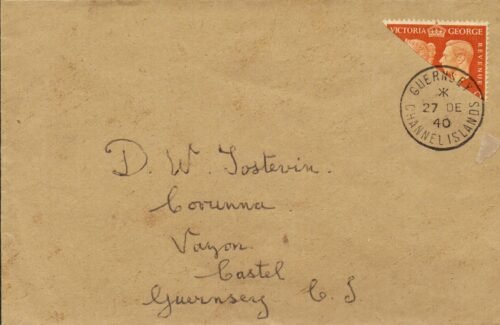 VICTORIA GEORGE
REVENUE
GUERNSEY
27 DE
40
CHANNEL ISLANDS
D. W. Tostevin.
Corunna
Vazon.
Castel
Guernsey C. I